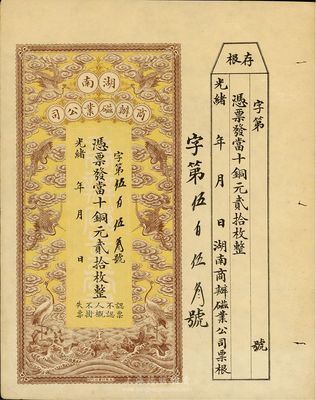 存根
字第 號
憑票發當十銅元貳拾枚整
光緒 年 月 日湖南商辦磁業公司票根
字第伍百伍角號
湖南
商辦磁業公司
字第伍百伍角號
憑票發當十銅元貳拾枚整
光緒 年 月 日
認票
不認
人概
不掛
失票